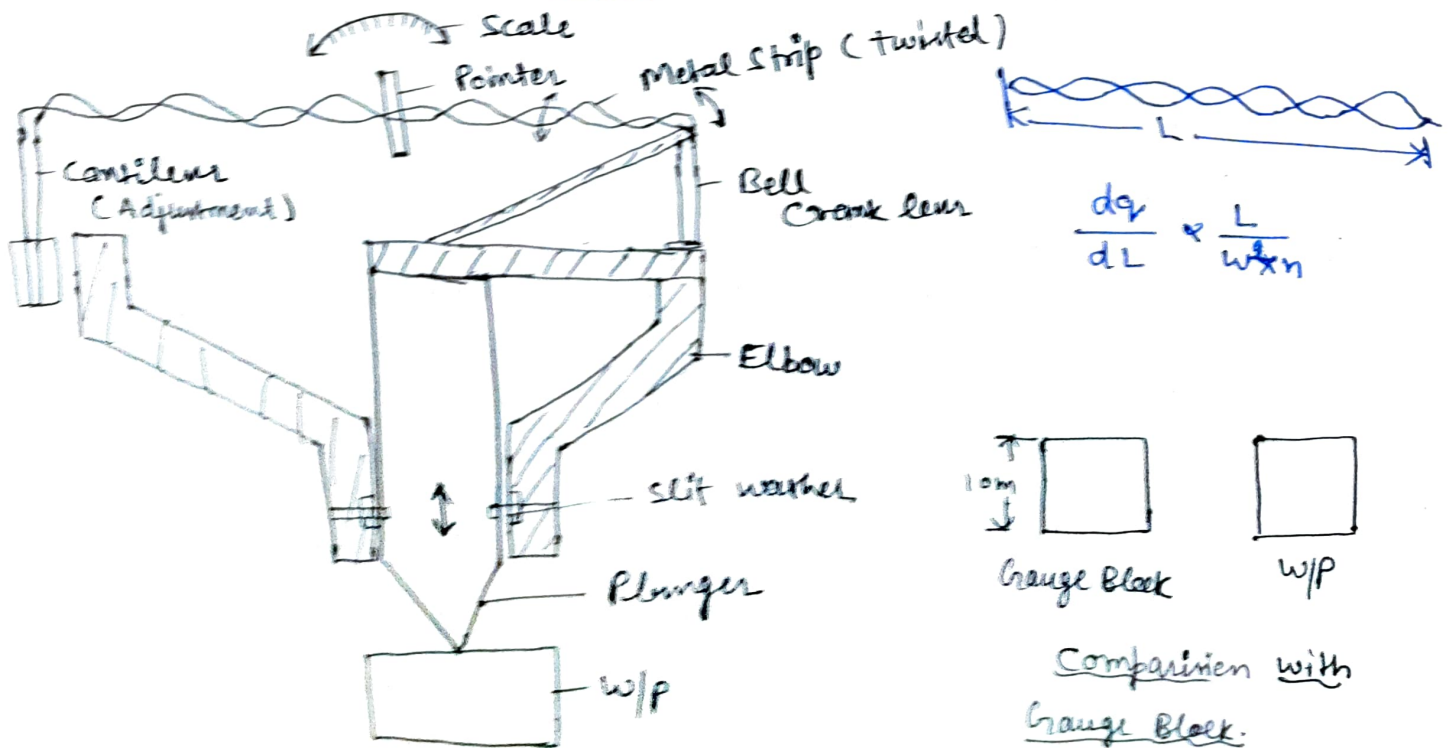 Scale
Pointer
Metal Strip (twisted)
Cantilever
(Adjustment)
Bell
Crank lever
L
dq/dL ∝ L/w²×n
Elbow
Slit washer
Plunger
W/P
10m
Gauge Block
W/P
Comparision with
Gauge Block.